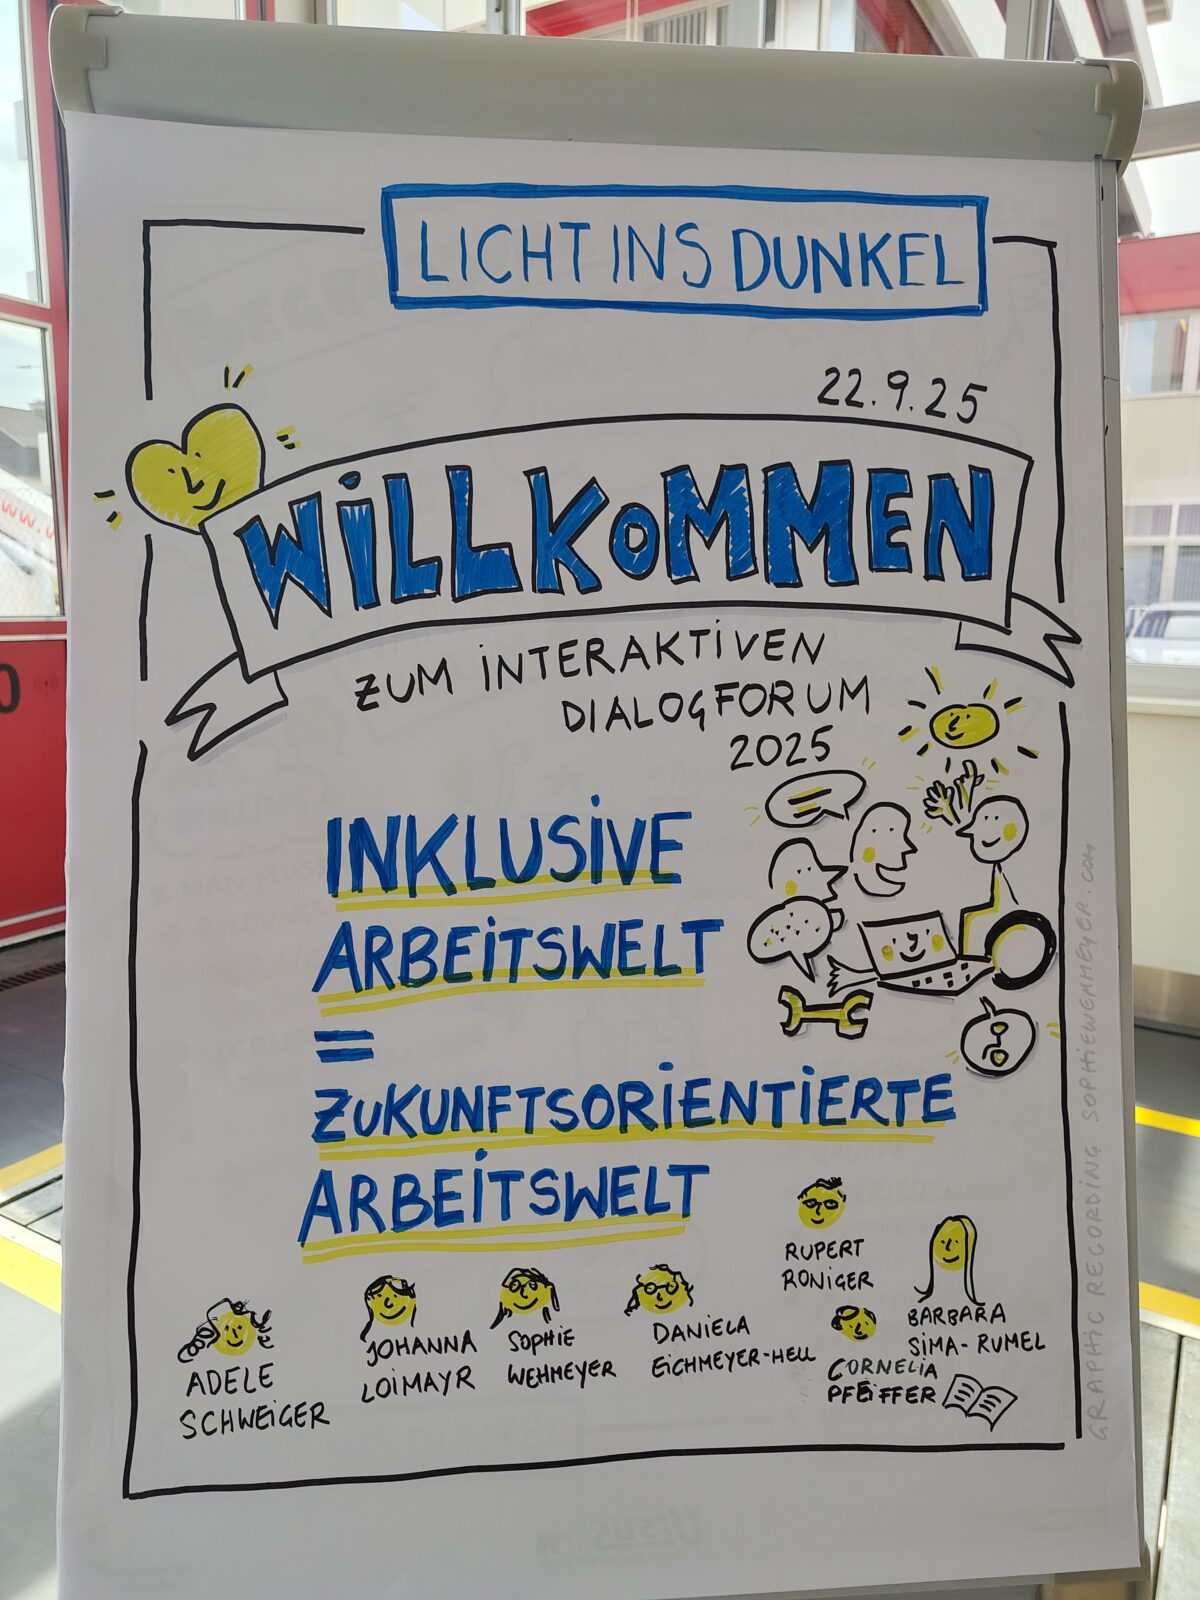 LICHT INS DUNKEL
22.9.25
WILLKOMMEN
ZUM INTERAKTIVEN
DIALOGFORUM
2025
INKLUSIVE
ARBEITSWELT
=
ZUKUNFTSORIENTIERTE
ARBEITSWELT
RUPERT
RONIGER
BARBARA
SIMA-RUMEL
ADELE
SCHWEIGER
JOHANNA
LOIMAYR
SOPHIE
WEHMEYER
DANIELA
EICHMEYER-HELL
CORNELIA
PFEIFFER
GRAPHIC RECORDING SOPHIEWEHMEYER.COM
Ursus